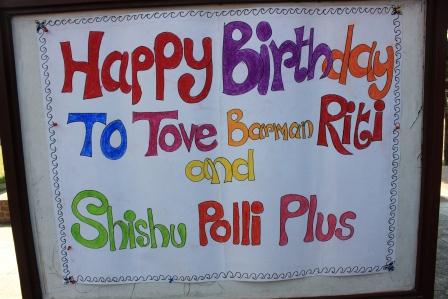 Happy Birthday
To Tove Barman Riti
and
Shishu Polli Plus